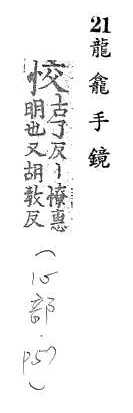 21 龍龕手鏡
恔 古了反丨憭惠
明也又胡敎反
（心部．p57）